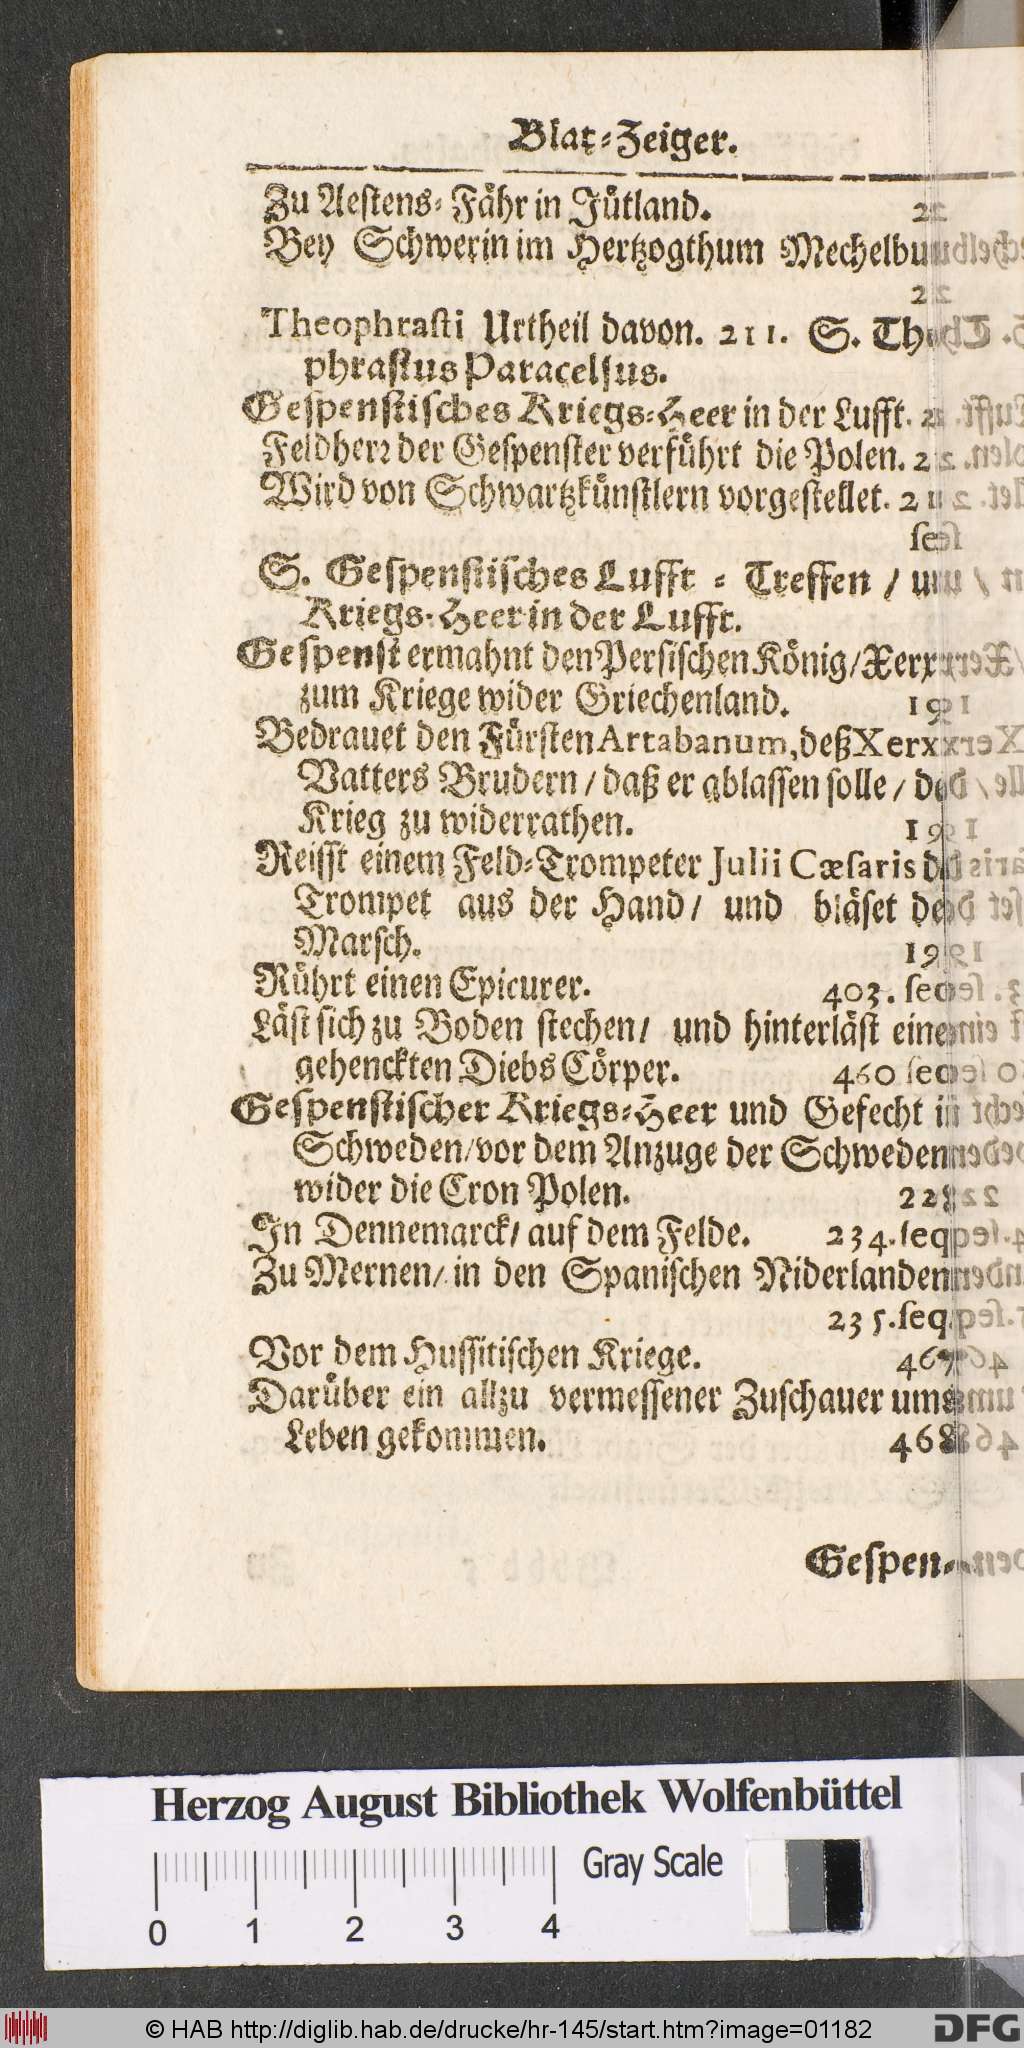 Blat-Zeiger.
Zu Aestens-Fähr in Jütland.
Bey Schwerin im Hertzogthum Mechelbu
Theophrasti Urtheil davon. 211. S. Theo
phrastus Paracelsus.
Gespenstisches Kriegs-Heer in der Lufft.
Feldherr der Gespenster verführt die Polen.
Wird von Schwartzkünstlern vorgestellet.
S. Gespenstisches Lufft-Treffen / und
Kriegs-Heer in der Lufft.
Gespenst ermahnt den Persischen König/Xerx
zum Kriege wider Griechenland. 191
Bedrauet den Fürsten Artabanum, deß Xerx
Vatters Brudern / daß er ablassen solle / den
Krieg zu widerrathen. 191
Reisst einem Feld-Trompeter Julii Cæsaris die
Trompet aus der Hand / und bläset den
Marsch. 199
Rührt einen Epicurer. 403. seq
Läst sich zu Boden stechen / und hinterläst eines
gehenckten Diebs Cörper. 460 seq
Gespenstischer Kriegs-Heer und Gefecht in
Schweden/vor dem Anzuge der Schweden
wider die Cron Polen.
In Dennemarck/ auf dem Felde. 234. seq
Zu Mernen/ in den Spanischen Niderlanden
235. seq.
Vor dem Hussitischen Kriege.
Darüber ein allzu vermessener Zuschauer ums
Leben gekommen. 468
Gespen-
Herzog August Bibliothek Wolfenbüttel
0 1 2 3 4
Gray Scale
© HAB http://diglib.hab.de/drucke/hr-145/start.htm?image=01182
DFG